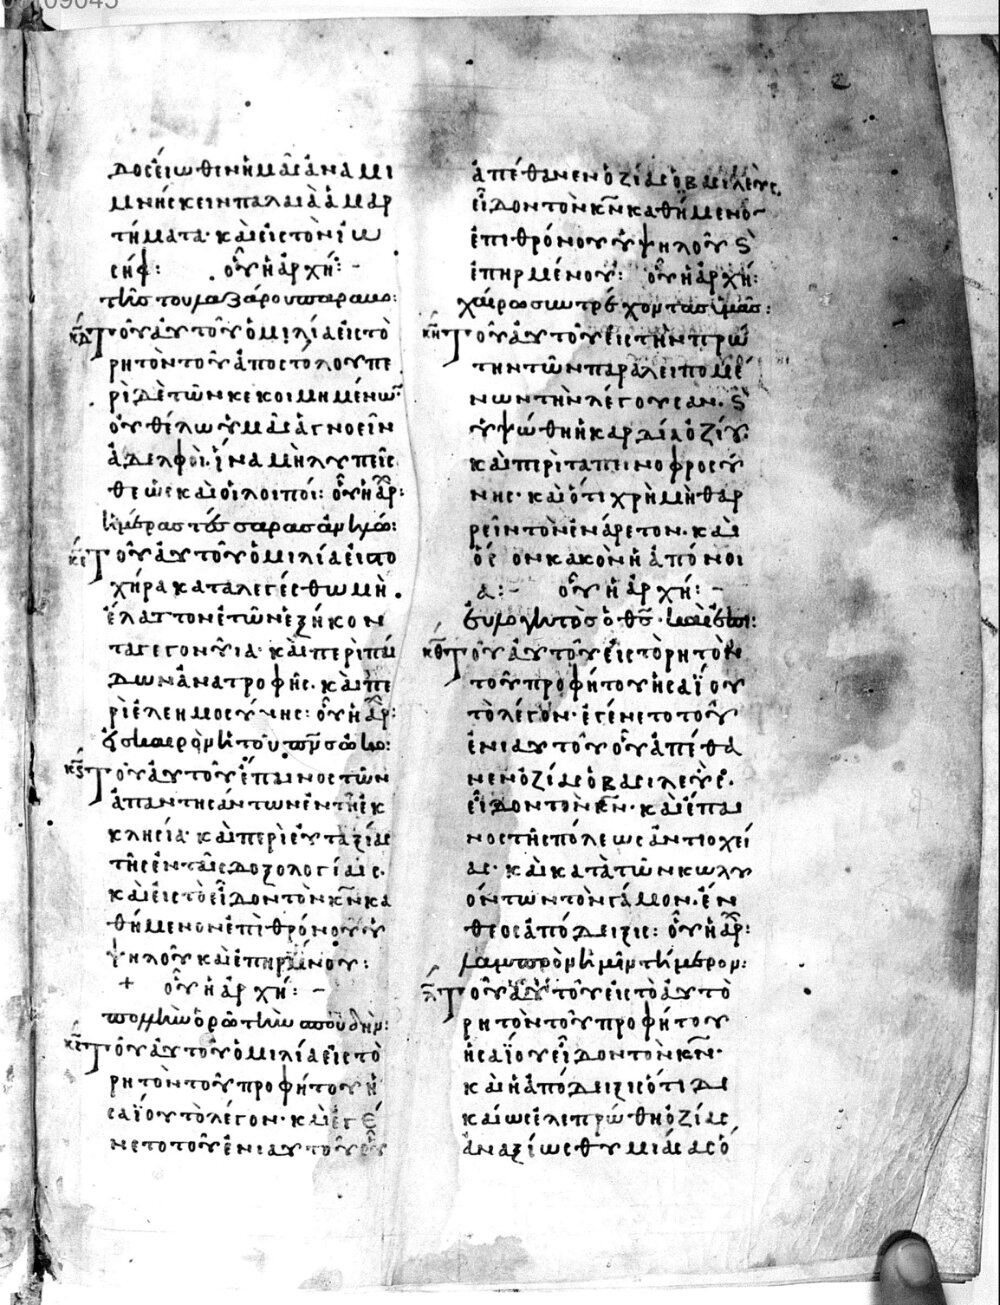 δος εἴωθεν ἡμᾶς ἀναμι
μνήσκειν παλαιὰ ἁμαρ
τήματα· καὶ εἰς τὸν ἰω
σήφ: οὗ ἡ ἀρχή: -
τῆς τοῦ λαζάρου
κδ τοῦ αὐτοῦ ὁμιλία εἰς τὸ
ρητὸν τοῦ ἀποστόλου πε
ρὶ δὲ τῶν κεκοιμημένων
οὐ θέλω ὑμᾶς ἀγνοεῖν
ἀδελφοὶ. ἵνα μὴ λυπεῖσ
θε ὡς καὶ οἱ λοιποί: οὗ ἡ ἀρ:
κε τοῦ αὐτοῦ ὁμιλία εἰς το
χήρα καταλεγέσθω μὴ
ἔλαττον ἐτῶν ἑξήκον
τα γεγονυῖα· καὶ περὶ παί
δων ἀνατροφῆς. καὶ πε
ρὶ ἐλεημοσύνης: οὗ ἡ ἀρ:
κϛ τοῦ αὐτοῦ ἔπαινος τῶν
ἀπαντησάντων ἐν τῇ ἐκ
κλησία· καὶ περὶ εὐταξίας
τῆς ἐν ταῖς δοξολογίαις.
καὶ εἰς τὸ εἶδον τὸν κν κα
θήμενον ἐπὶ θρόνου ὑ
ψηλοῦ καὶ ἐπηρμένου:
+ οὗ ἡ ἀρχή: -
κζ τοῦ αὐτοῦ ὁμιλία εἰς τὸ
ρητὸν τοῦ προφήτου ἡ
σαΐου τὸ λέγον· καὶ ἐγέ
νετο τοῦ ἐνιαυτοῦ οὗ
ἀπέθανεν ὀζίας ὁ βασιλεύς.
εἶδον τὸν κν καθήμενο
ἐπὶ θρόνου ὑψηλοῦ ϗ
ἐπηρμένου: οὗ ἡ ἀρχή:
χαίρω συντρέχοντας ὑμᾶς:
κη τοῦ αὐτοῦ εἰς τὴν πρώ
την τῶν παραλειπομέ
νων τὴν λέγουσαν. ϗ
ὑψώθη ἡ καρδία ὀζίου.
καὶ περὶ ταπεινοφροσύ
νης· καὶ ὅτι χρὴ μὴ θαρ
ρεῖν τὸν ἐνάρετον· καὶ
ὅσον κακὸν ἡ ἀπόνοι
α: - οὗ ἡ ἀρχή: -
εὐλογητὸς ὁ θς·
κθ τοῦ αὐτοῦ εἰς τὸ ρητὸν
τοῦ προφήτου ἡσαΐου
τὸ λέγον· ἐγένετο τοῦ
ἐνιαυτοῦ οὗ ἀπέθα
νεν ὀζίας ὁ βασιλεύς.
εἶδον τὸν κν· καὶ ἔπαι
νος τῆς πόλεως ἀντιοχεί
ας· καὶ κατὰ τῶν κωλυ
όντων τὸν γάμον. ἔν
θεος ἀπόδειξις: οὗ ἡ ἀρ:
λαμπρὸν ἡμῖν τήμερον:
λ τοῦ αὐτοῦ εἰς τὸ αὐτὸ
ρητὸν τοῦ προφήτου
ἡσαΐου εἶδον τὸν κν·
καὶ ἡ ἀπόδειξις ὅτι δι
καίως ἐλεπρώθη ὀζίας
ἀναξίως θυμιάσας ὁ